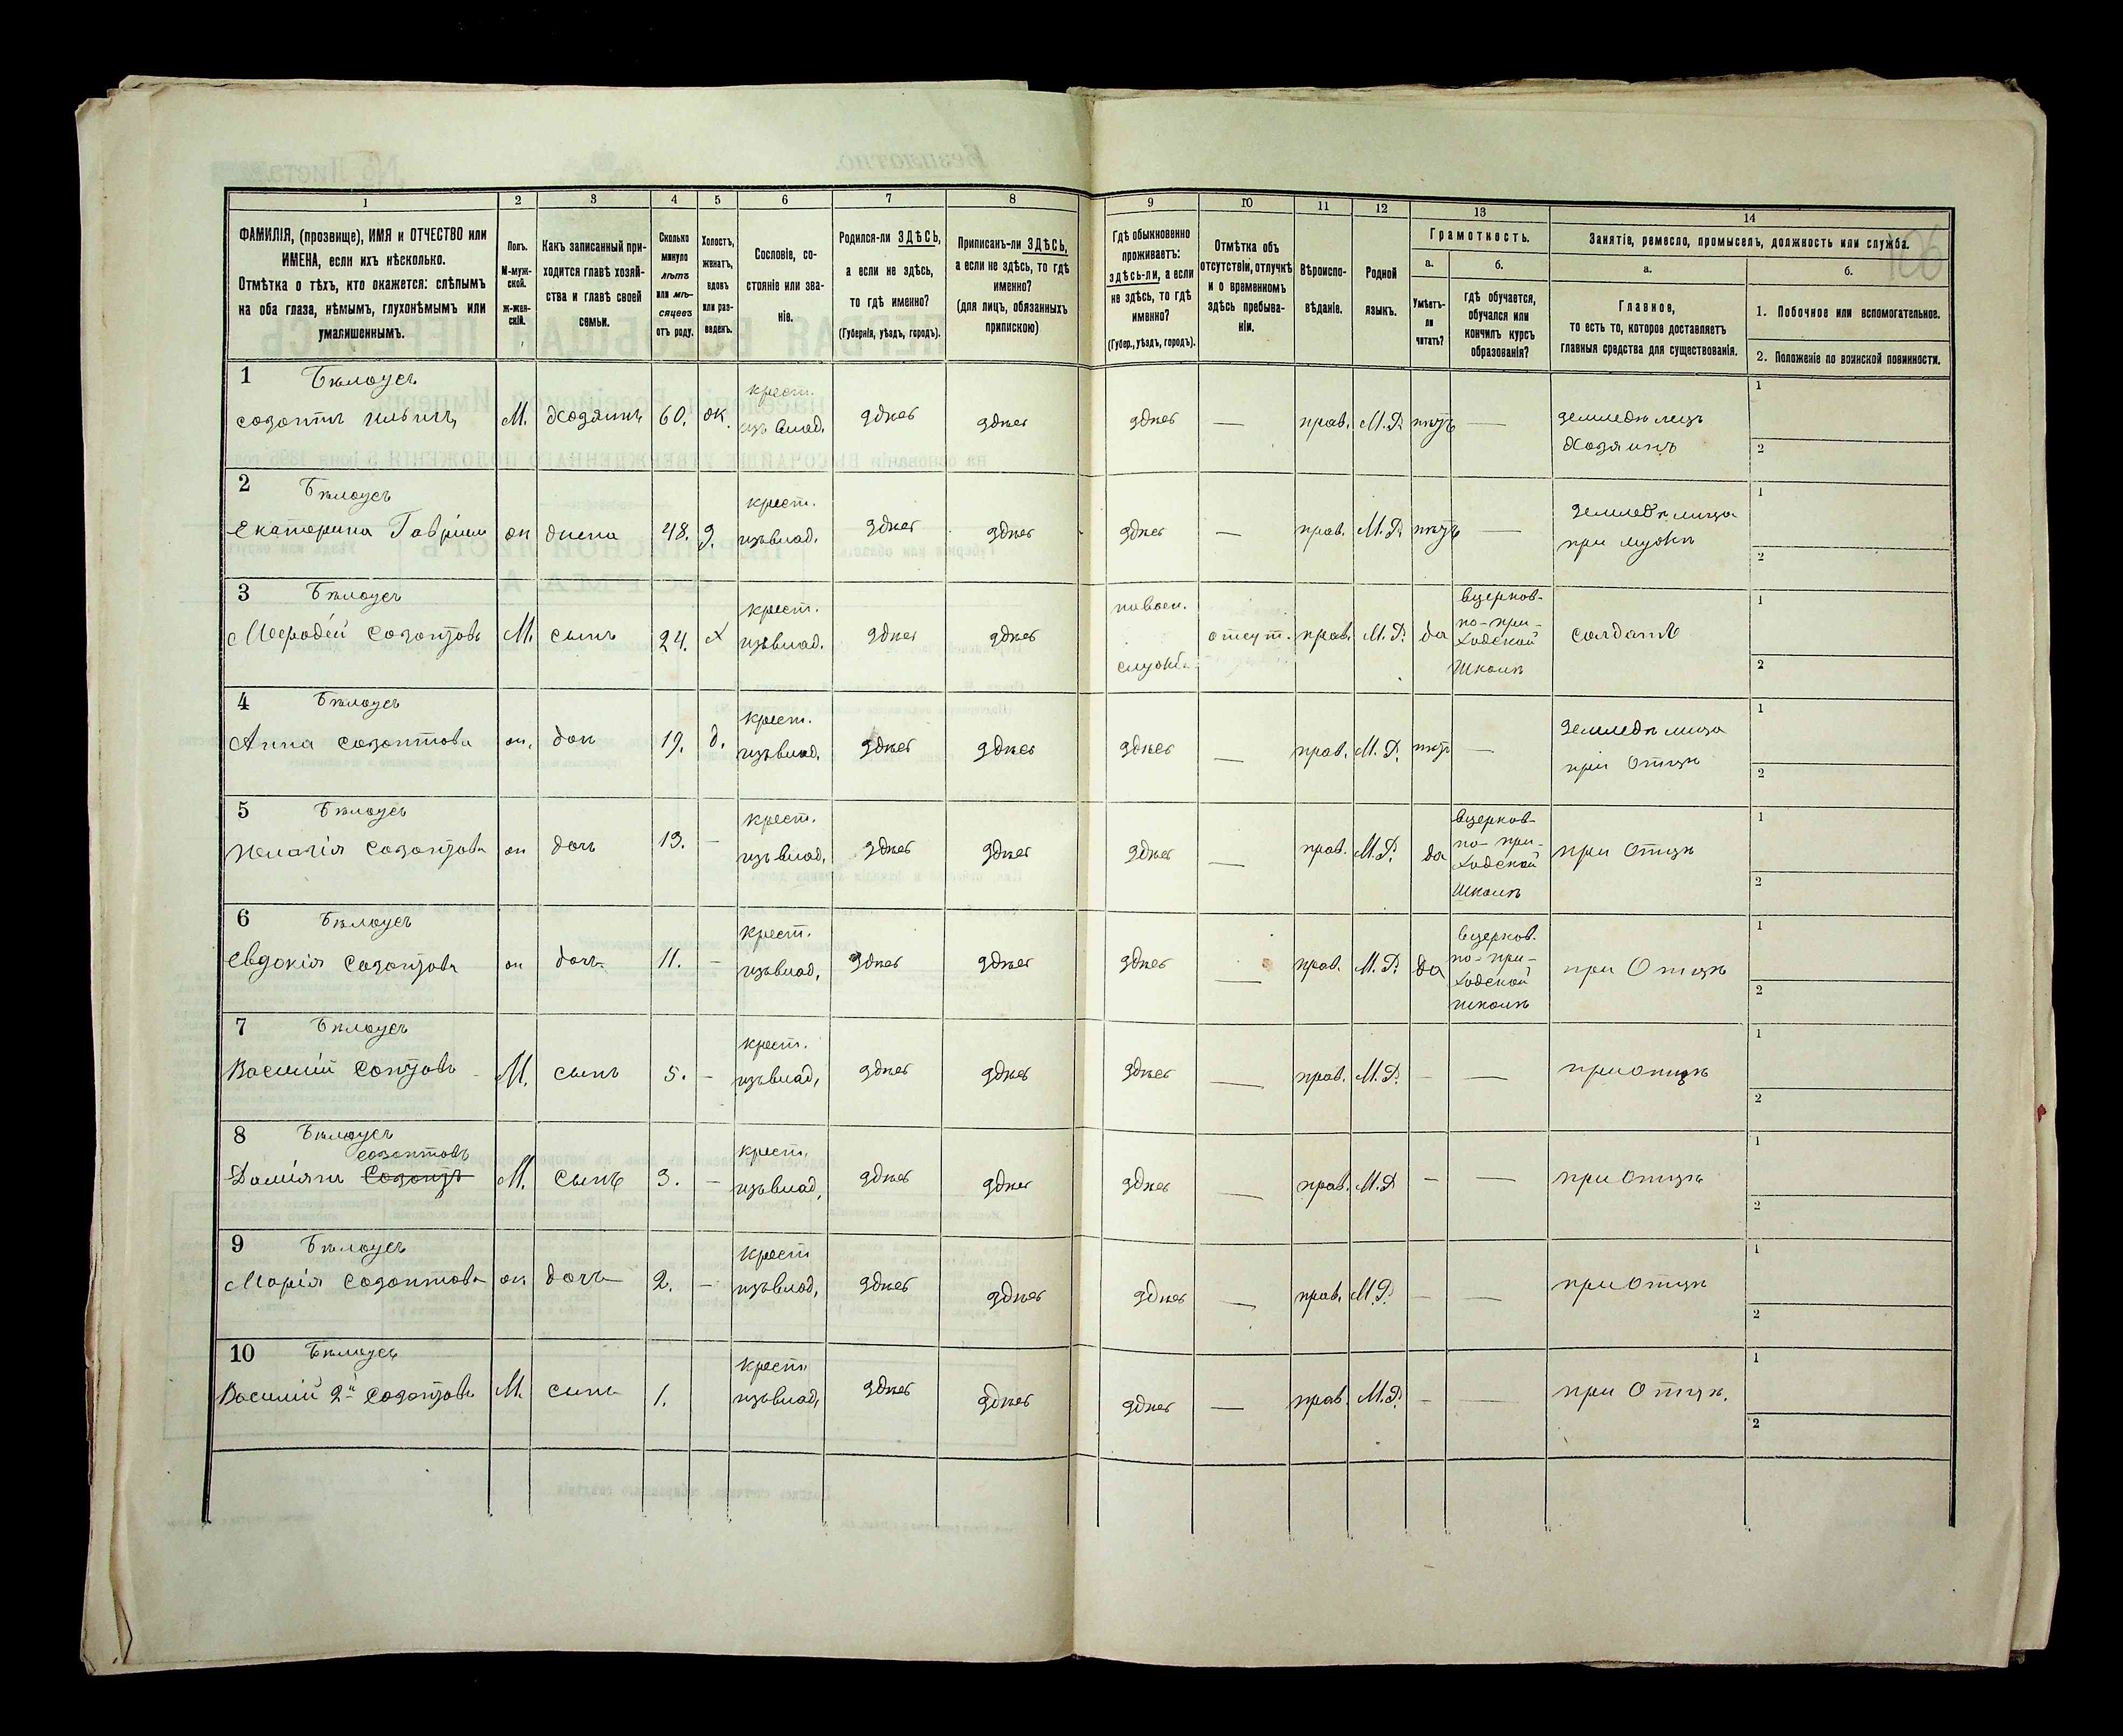 1 2 3 4 5 6 7 8 9 10 11 12 13 14
ФАМИЛІЯ, (прозвище), ИМЯ и ОТЧЕСТВО или
ИМЕНА, если ихъ нѣсколько.
Отмѣтка о тѣхъ, кто окажется: слѣпымъ
на оба глаза, нѣмымъ, глухонѣмымъ или
умалишеннымъ.
Полъ.
М-муж-
ской.
ж-жен-
скій.
Какъ записанный при-
ходится главѣ хозяй-
ства и главѣ своей
семьи.
Сколько
минуло
лѣтъ
или мѣ-
сяцевъ
отъ роду.
Холостъ,
женатъ,
вдовъ
или раз-
веденъ.
Сословіе, со-
стояніе или зва-
ніе.
Родился-ли ЗДѢСЬ,
а если не здѣсь,
то гдѣ именно?
(Губернія, уѣздъ, городъ).
Приписанъ-ли ЗДѢСЬ,
а если не здѣсь, то гдѣ
именно?
(для лицъ, обязанныхъ
припискою)
Гдѣ обыкновенно
проживаетъ:
здѣсь-ли, а если
не здѣсь, то гдѣ
именно?
(Губер., уѣздъ, городъ).
Отмѣтка объ
отсутствіи, отлучкѣ
и о временномъ
здѣсь пребыва-
ніи.
Вѣроиспо-
вѣданіе.
Родной
языкъ.
Грамотность.
а.
Умѣетъ-
ли
читать?
б.
гдѣ обучается,
обучался или
кончилъ курсъ
образованія?
Занятіе, ремесло, промыселъ, должность или служба.
а.
Главное,
то есть то, которое доставляетъ
главныя средства для существованія.
б.
1. Побочное или вспомогательное.
2. Положеніе по воинской повинности.
106
1 Бѣлоусъ
Созонтъ Ильичъ М. Хозяинъ 60. ж. крест. изъ влад. здѣсь здѣсь здѣсь — прав. М.Р. нѣтъ — земледѣлецъ
Хозяинъ
1
2
2 Бѣлоусъ
Екатерина ж жена 48. З. крест. изъ влад. здѣсь здѣсь здѣсь — прав. М.Р. нѣтъ — земледѣлица
при мужѣ
1
2
3 Бѣлоусъ
Созонтовъ М. сынъ 24. Х крест. изъ влад. здѣсь здѣсь по воен. служб. отсут. прав. М.Р. да в церков-
но-при-
ходской
школѣ
солдатъ
1
2
4 Бѣлоусъ
Анна Созонтова ж. доч 19. д. крест. изъ влад. здѣсь здѣсь здѣсь — прав. М.Р. нѣтъ — земледѣлица
при отцѣ
1
2
5 Бѣлоусъ
Пелагія Созонтова ж дочь 13. — крест. изъ влад. здѣсь здѣсь здѣсь — прав. М.Р. да в церков-
но-при-
ходской
школѣ
при отцѣ
1
2
6 Бѣлоусъ
Евдокія Созонтова ж дочь 11. — крест. изъ влад. здѣсь здѣсь здѣсь — прав. М.Р. да в церков.
но-при-
ходской
школѣ
при отцѣ
1
2
7 Бѣлоусъ
Василій Сонтовъ М. сынъ 5. — крест. изъ влад. здѣсь здѣсь здѣсь — прав. М.Р. — — при отцѣ
1
2
8 Бѣлоусъ
Созонтовъ
Даміянъ Созонтъ М. сынъ 3. — крест. изъ влад. здѣсь здѣсь здѣсь — прав. М.Р — — при отцѣ
1
2
9 Бѣлоусъ
Марія Созонтова ж дочь 2. — крест изъ влад. здѣсь здѣсь здѣсь — прав. М.Р. — — при отцѣ
1
2
10 Бѣлоусъ
Василій 2й Созонтовъ М. сынъ 1. крест изъ влад. здѣсь здѣсь здѣсь — прав. М.Р. — — при отцѣ.
1
2